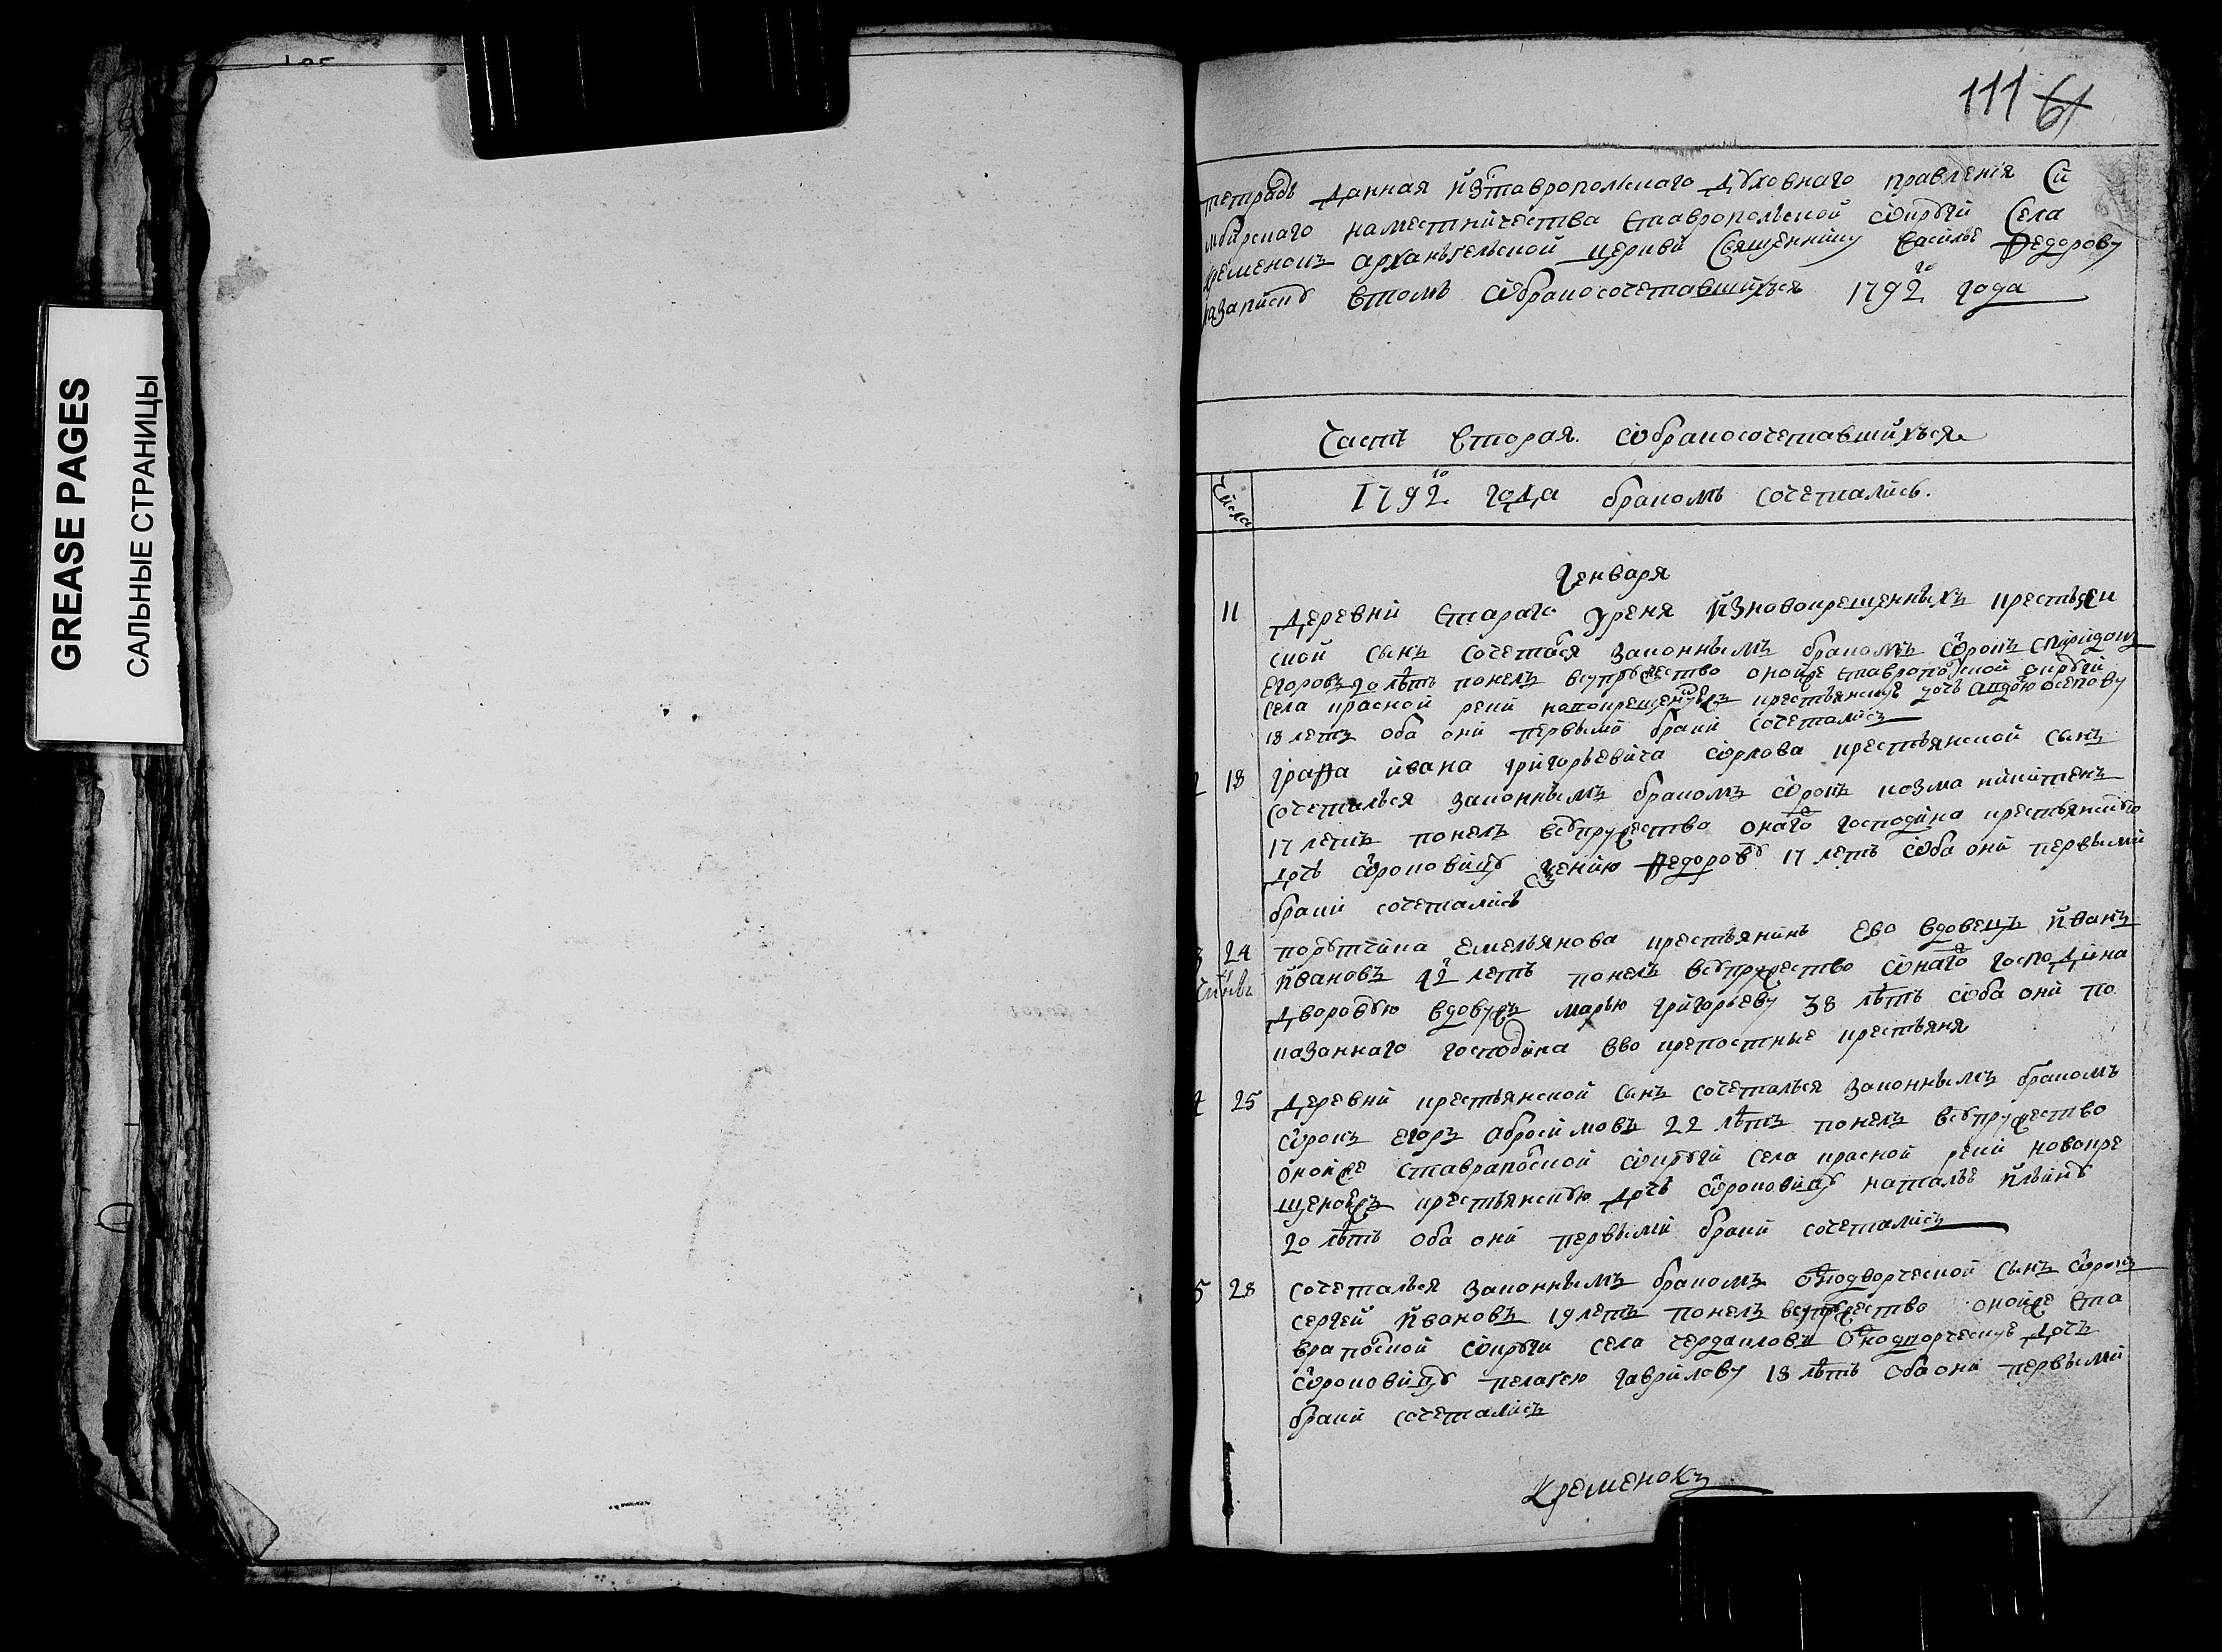 GREASE PAGES
САЛЬНЫЕ СТРАНИЦЫ
111 61
тетрадь данная изставропольскаго духовнаго правления Си
мбирскаго наместничества Ставропольской округи Села
кременокъ арханьгельской церкви Священнику василью Федорову
назаписку втомъ обракосочетавшихъся 1792 го года
Часть вторая обракосочетавшихъся
Числа
1792 го года бракомъ сочетались.
Генваря
11 деревни Стараго Уреня изновокрещенныхъ крестьян
ской сынъ сочетася законнымъ бракомъ отрокъ спиридонъ
Егоровъ 20 лѣтъ понелъ всупружество онойже ставропоской округи
села красной реки крестьянскую дочь осепову
18 летъ оба они первыми браки сочетались
2 18 графа ивана григорьевича орлова крестьянской сынъ
сочеталься законнымъ бракомъ отрокъ козма никитенъ
17 летъ понелъ всупружество онаго господина крестьянскую
дочь отроковицу Федорову 17 летъ оба они первыми
браки сочетались
3 24 порутчика Емельянова крестьянинъ Ево вдовецъ иванъ
ивановъ 42 летъ понелъ всупружество онаго господина
дворовую вдову марью григорьеву 38 лѣтъ оба они по
казаннаго господина ево крепостные крестьяня
4 25 деревни крестьянской сынъ сочеталься законнымъ бракомъ
отрокъ Егоръ абросимовъ 22 лѣтъ понелъ всупружество
онойже ставрапоской округи села красной реки новокре
щеныхъ крестьянскую дочь отроковицу наталье ильину
20 лѣтъ оба они первыми браки сочетались
5 28 сочеталься законнымъ бракомъ однодворческой сынъ отрокъ
сергей ивановъ 19 летъ понелъ всупружество онойже ста
врапоской округи села чердакловъ однодворческую дочь
отроковицу пелагею гаврилову 18 лѣтъ оба они первыми
браки сочетались
Кременокъ